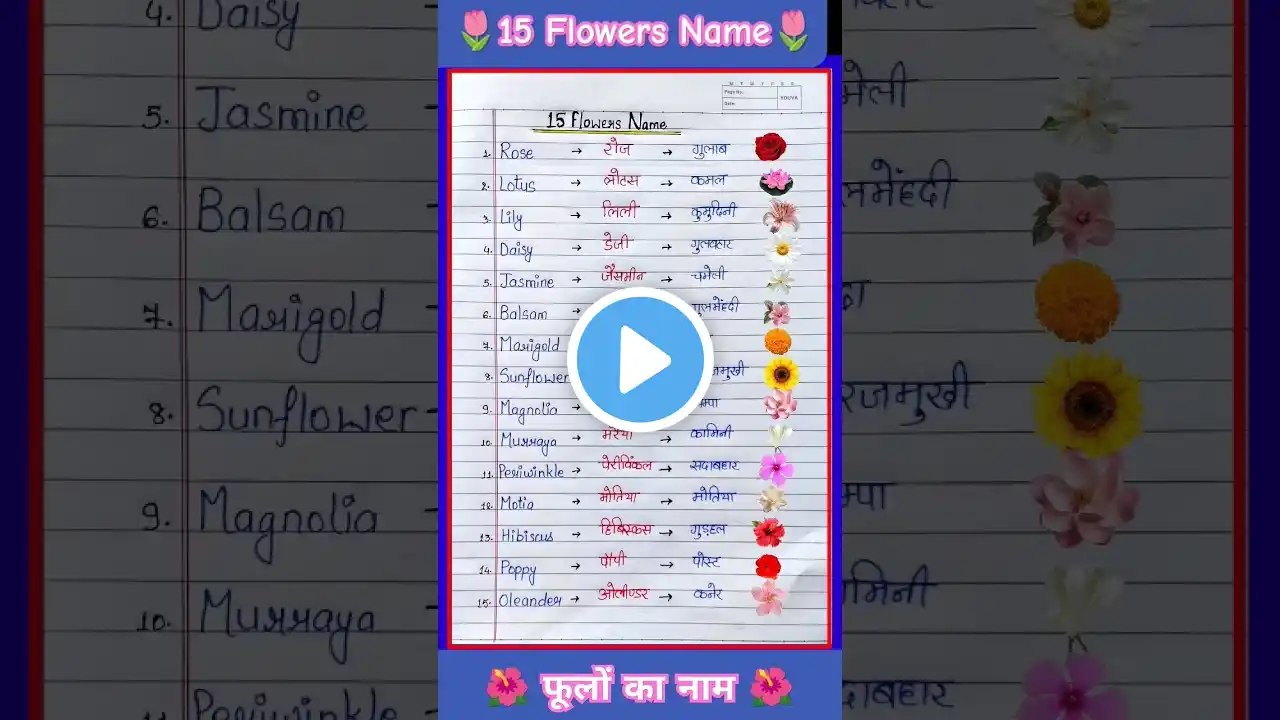 🌷15 Flowers Name🌷
M T W T F S S
Page No.:
Date:
YOUVA
15 Flowers Name
1. Rose → रोज → गुलाब
2. Lotus → लोटस → कमल
3. Lily → लिली → कुमुदिनी
4. Daisy → डेजी → गुलबहार
5. Jasmine → जैसमीन → चमेली
6. Balsam → गुलमेंहदी
7. Marigold
8. Sunflower जमुखी
9. Magnolia → म्पा
10. Murraya → मरैया → कामिनी
11. Periwinkle → पेरीविंकल → सदाबहार
12. Motia → मोतिया → मोतिया
13. Hibiscus → हिबिस्कस → गुड़हल
14. Poppy → पौपी → पोस्ट
15. Oleander → ओलीण्डर → कनेर
🌺 फूलों का नाम 🌺
4. Daisy
5. Jasmine - मेली
6. Balsam लमेंहदी
7. Marigold
8. Sunflower - रजमुखी
9. Magnolia म्पा
10. Murraya मिनी
11. Periwinkle दाबहार